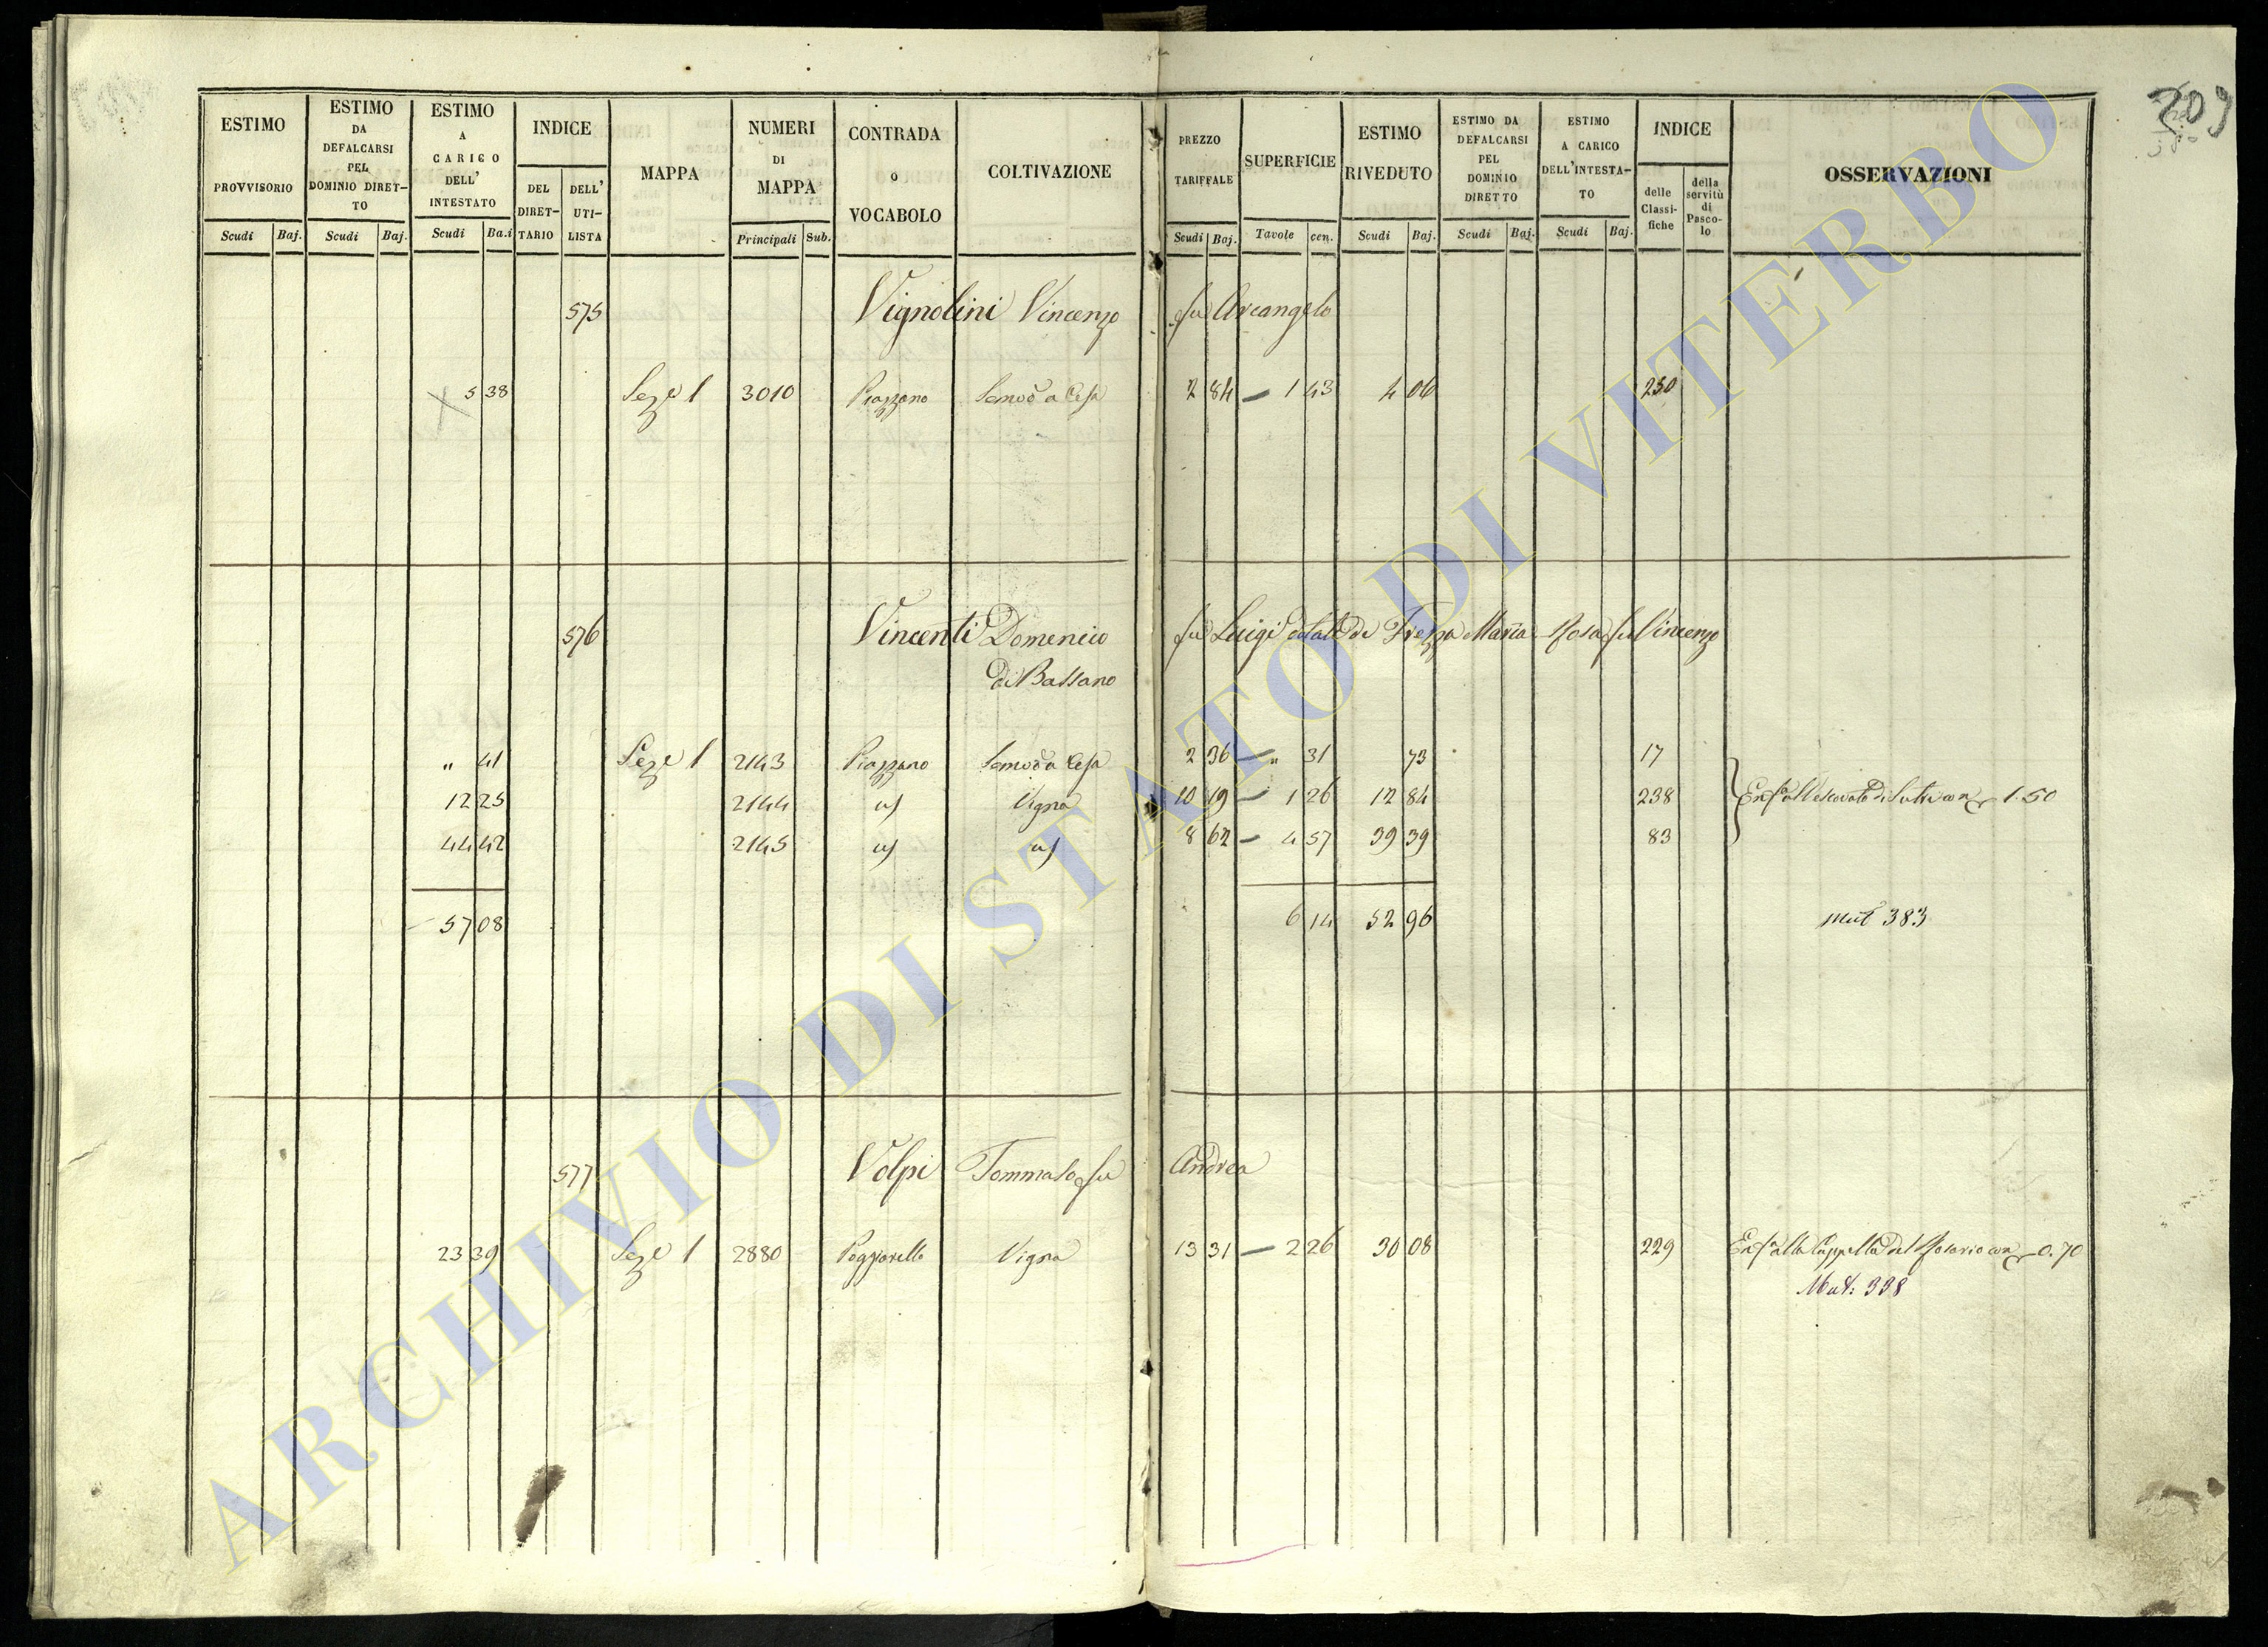 209
ESTIMO PROVVISORIO Scudi Baj.
ESTIMO DA DEFALCARSI PEL DOMINIO DIRET-TO Scudi Baj.
ESTIMO A CARICO DELL' INTESTATO Scudi Ba.i
INDICE DEL DIRET-TARIO DELL' UTI-LISTA
MAPPA
NUMERI DI MAPPA Principali Sub.
CONTRADA O VOCABOLO
COLTIVAZIONE
PREZZO TARIFFALE Scudi Baj.
SUPERFICIE Tavole cen.
ESTIMO RIVEDUTO Scudi Baj.
ESTIMO DA DEFALCARSI PEL DOMINIO DIRETTO Scudi Baj.
ESTIMO A CARICO DELL'INTESTA-TO Scudi Baj.
INDICE delle Classi-fiche della servitù di Pasco-lo
OSSERVAZIONI
575 Vignolini Vincenzo fu Arcangelo
5 38 Seze 1 3010 Piazzano 2 84 1 43 4 06 250
576 Vincenti Domenico fu Luigi Maria Rosa fu Vincenzo
di Bassano
" 41 Seze 1 2143 Piazzano 2 36 " 31 73 17
12 25 2144 Vigna 10 19 1 26 12 84 238 1.50
44 42 2145 8 62 4 57 39 39 83
57 08 6 14 52 96 Mut 383
577 Volpi Tommaso fu Andrea
23 39 Seze 1 2880 Poggiarello Vigna 13 31 2 26 30 08 229 alla Cappella del Rosario con 0.70
Mut: 338
ARCHIVIO DI STATO DI VITERBO